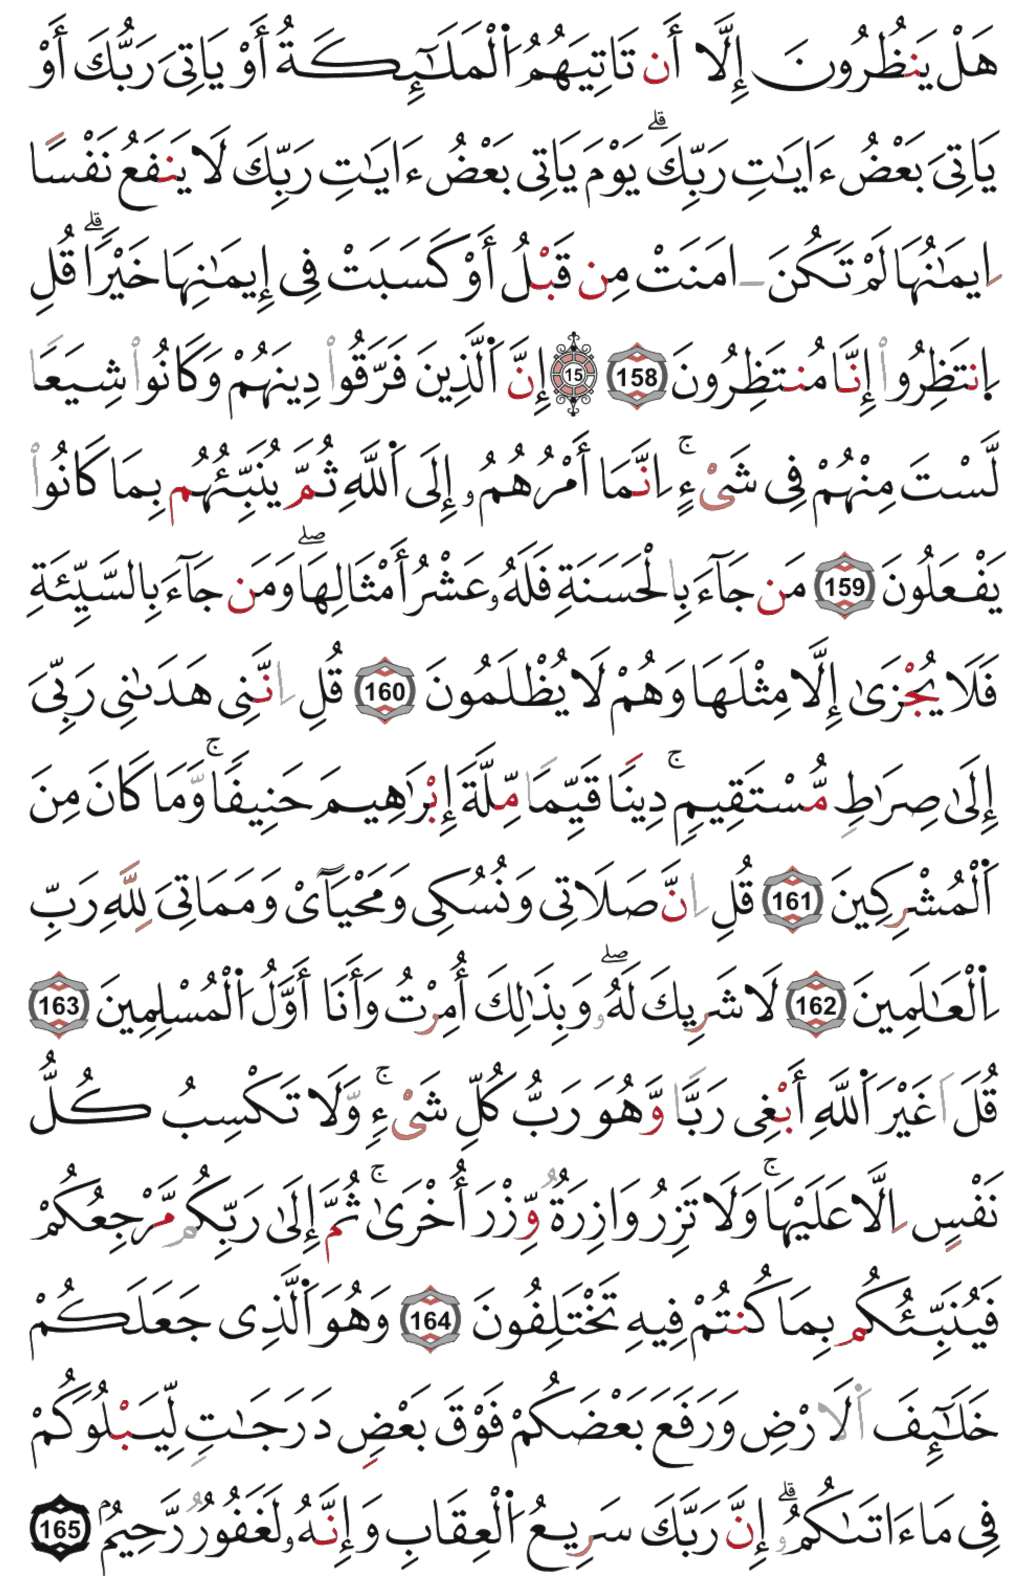 هَلْ يَنظُرُونَ إِلَّا أَن تَاتِيَهُمُ اُ۬لْمَلَٰٓئِكَةُ أَوْ يَاتِيَ رَبُّكَ أَوْ
يَاتِيَ بَعْضُ ءَايَٰتِ رَبِّكَۗ يَوْمَ يَاتِي بَعْضُ ءَايَٰتِ رَبِّكَ لَا يَنفَعُ نَفْسًا
اِيمَٰنُهَا لَمْ تَكُنَ اٰمَنَتْ مِن قَبْلُ أَوْ كَسَبَتْ فِي إِيمَٰنِهَا خَيْرًاۗ قُلِ
اِ۪نتَظِرُوا۟ إِنَّا مُنتَظِرُونَ 158 15 إِنَّ اَ۬لَّذِينَ فَرَّقُوا۟ دِينَهُمْ وَكَانُوا۟ شِيَعًا
لَّسْتَ مِنْهُمْ فِي شَيْءٍۚ اِنَّمَا أَمْرُهُمُۥ إِلَى اَ۬للَّهِ ثُمَّ يُنَبِّئُهُم بِمَا كَانُوا۟
يَفْعَلُونَ 159 مَن جَآءَ بِالْحَسَنَةِ فَلَهُۥ عَشْرُ أَمْثَالِهَاۖ وَمَن جَآءَ بِالسَّيِّئَةِ
فَلَا يُجْزَىٰ إِلَّا مِثْلَهَا وَهُمْ لَا يُظْلَمُونَ 160 قُلِ اِنَّنِي هَدَىٰنِي رَبِّيَ
إِلَىٰ صِرَٰطٍ مُّسْتَقِيمٍۚ دِينًا قَيِّمًا مِّلَّةَ إِبْرَٰهِيمَ حَنِيفًاۚ وَمَا كَانَ مِنَ
اَ۬لْمُشْرِكِينَ 161 قُلِ اِنَّ صَلَاتِي وَنُسُكِي وَمَحْيَآيْ وَمَمَاتِيَ لِلَّهِ رَبِّ
اِ۬لْعَٰلَمِينَ 162 لَا شَرِيكَ لَهُۥۖ وَبِذَٰلِكَ أُمِرْتُ وَأَنَا أَوَّلُ اُ۬لْمُسْلِمِينَ 163
قُلَ اَغَيْرَ اَ۬للَّهِ أَبْغِي رَبًّا وَّهُوَ رَبُّ كُلِّ شَيْءٍۚ وَّلَا تَكْسِبُ كُلُّ
نَفْسٍ اِلَّا عَلَيْهَاۚ وَلَا تَزِرُ وَازِرَةٌ وِّزْرَ أُخْرَىٰۚ ثُمَّ إِلَىٰ رَبِّكُم مَّرْجِعُكُمْ
فَيُنَبِّئُكُم بِمَا كُنتُمْ فِيهِ تَخْتَلِفُونَ 164 وَهُوَ اَ۬لَّذِي جَعَلَكُمْ
خَلَٰٓئِفَ اَ۬لَارْضِ وَرَفَعَ بَعْضَكُمْ فَوْقَ بَعْضٍ دَرَجَٰتٍ لِّيَبْلُوَكُمْ
فِي مَا ءَاتَىٰكُمُۥۗ إِنَّ رَبَّكَ سَرِيعُ اُ۬لْعِقَابِ وَإِنَّهُۥ لَغَفُورٌ رَّحِيمٌ 165